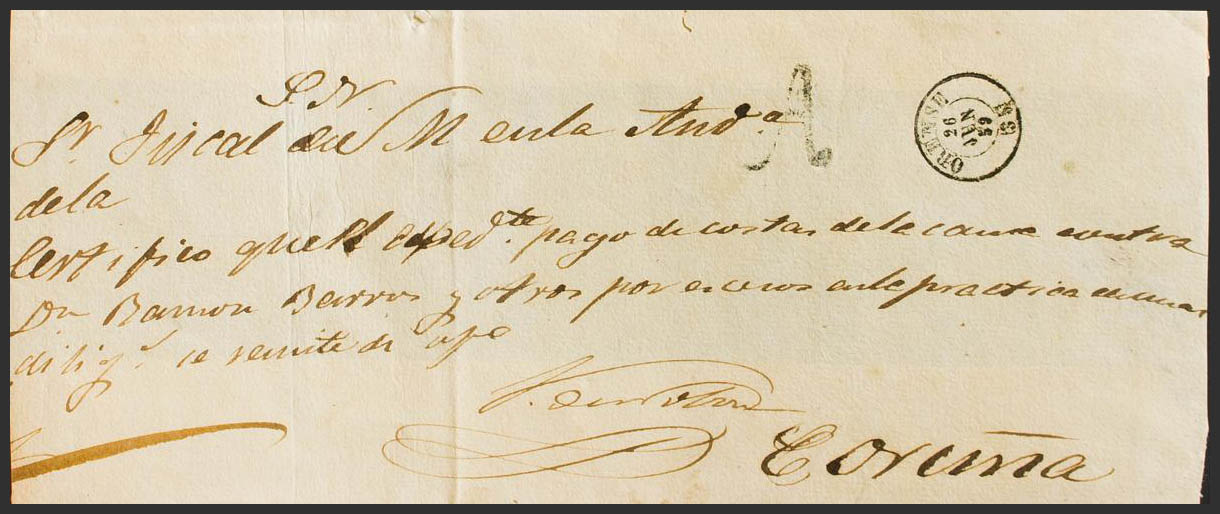 S. N.
Sr. Fiscal de S. M. en la Aud.a
A
ORENSE 26 JUN 59
de la
Certifico que el exped.te pago de costas de la causa contra
Dn Ramon Barros y otros por escesos en la practica de unas
dilig.s se remite de ofo
Coruña